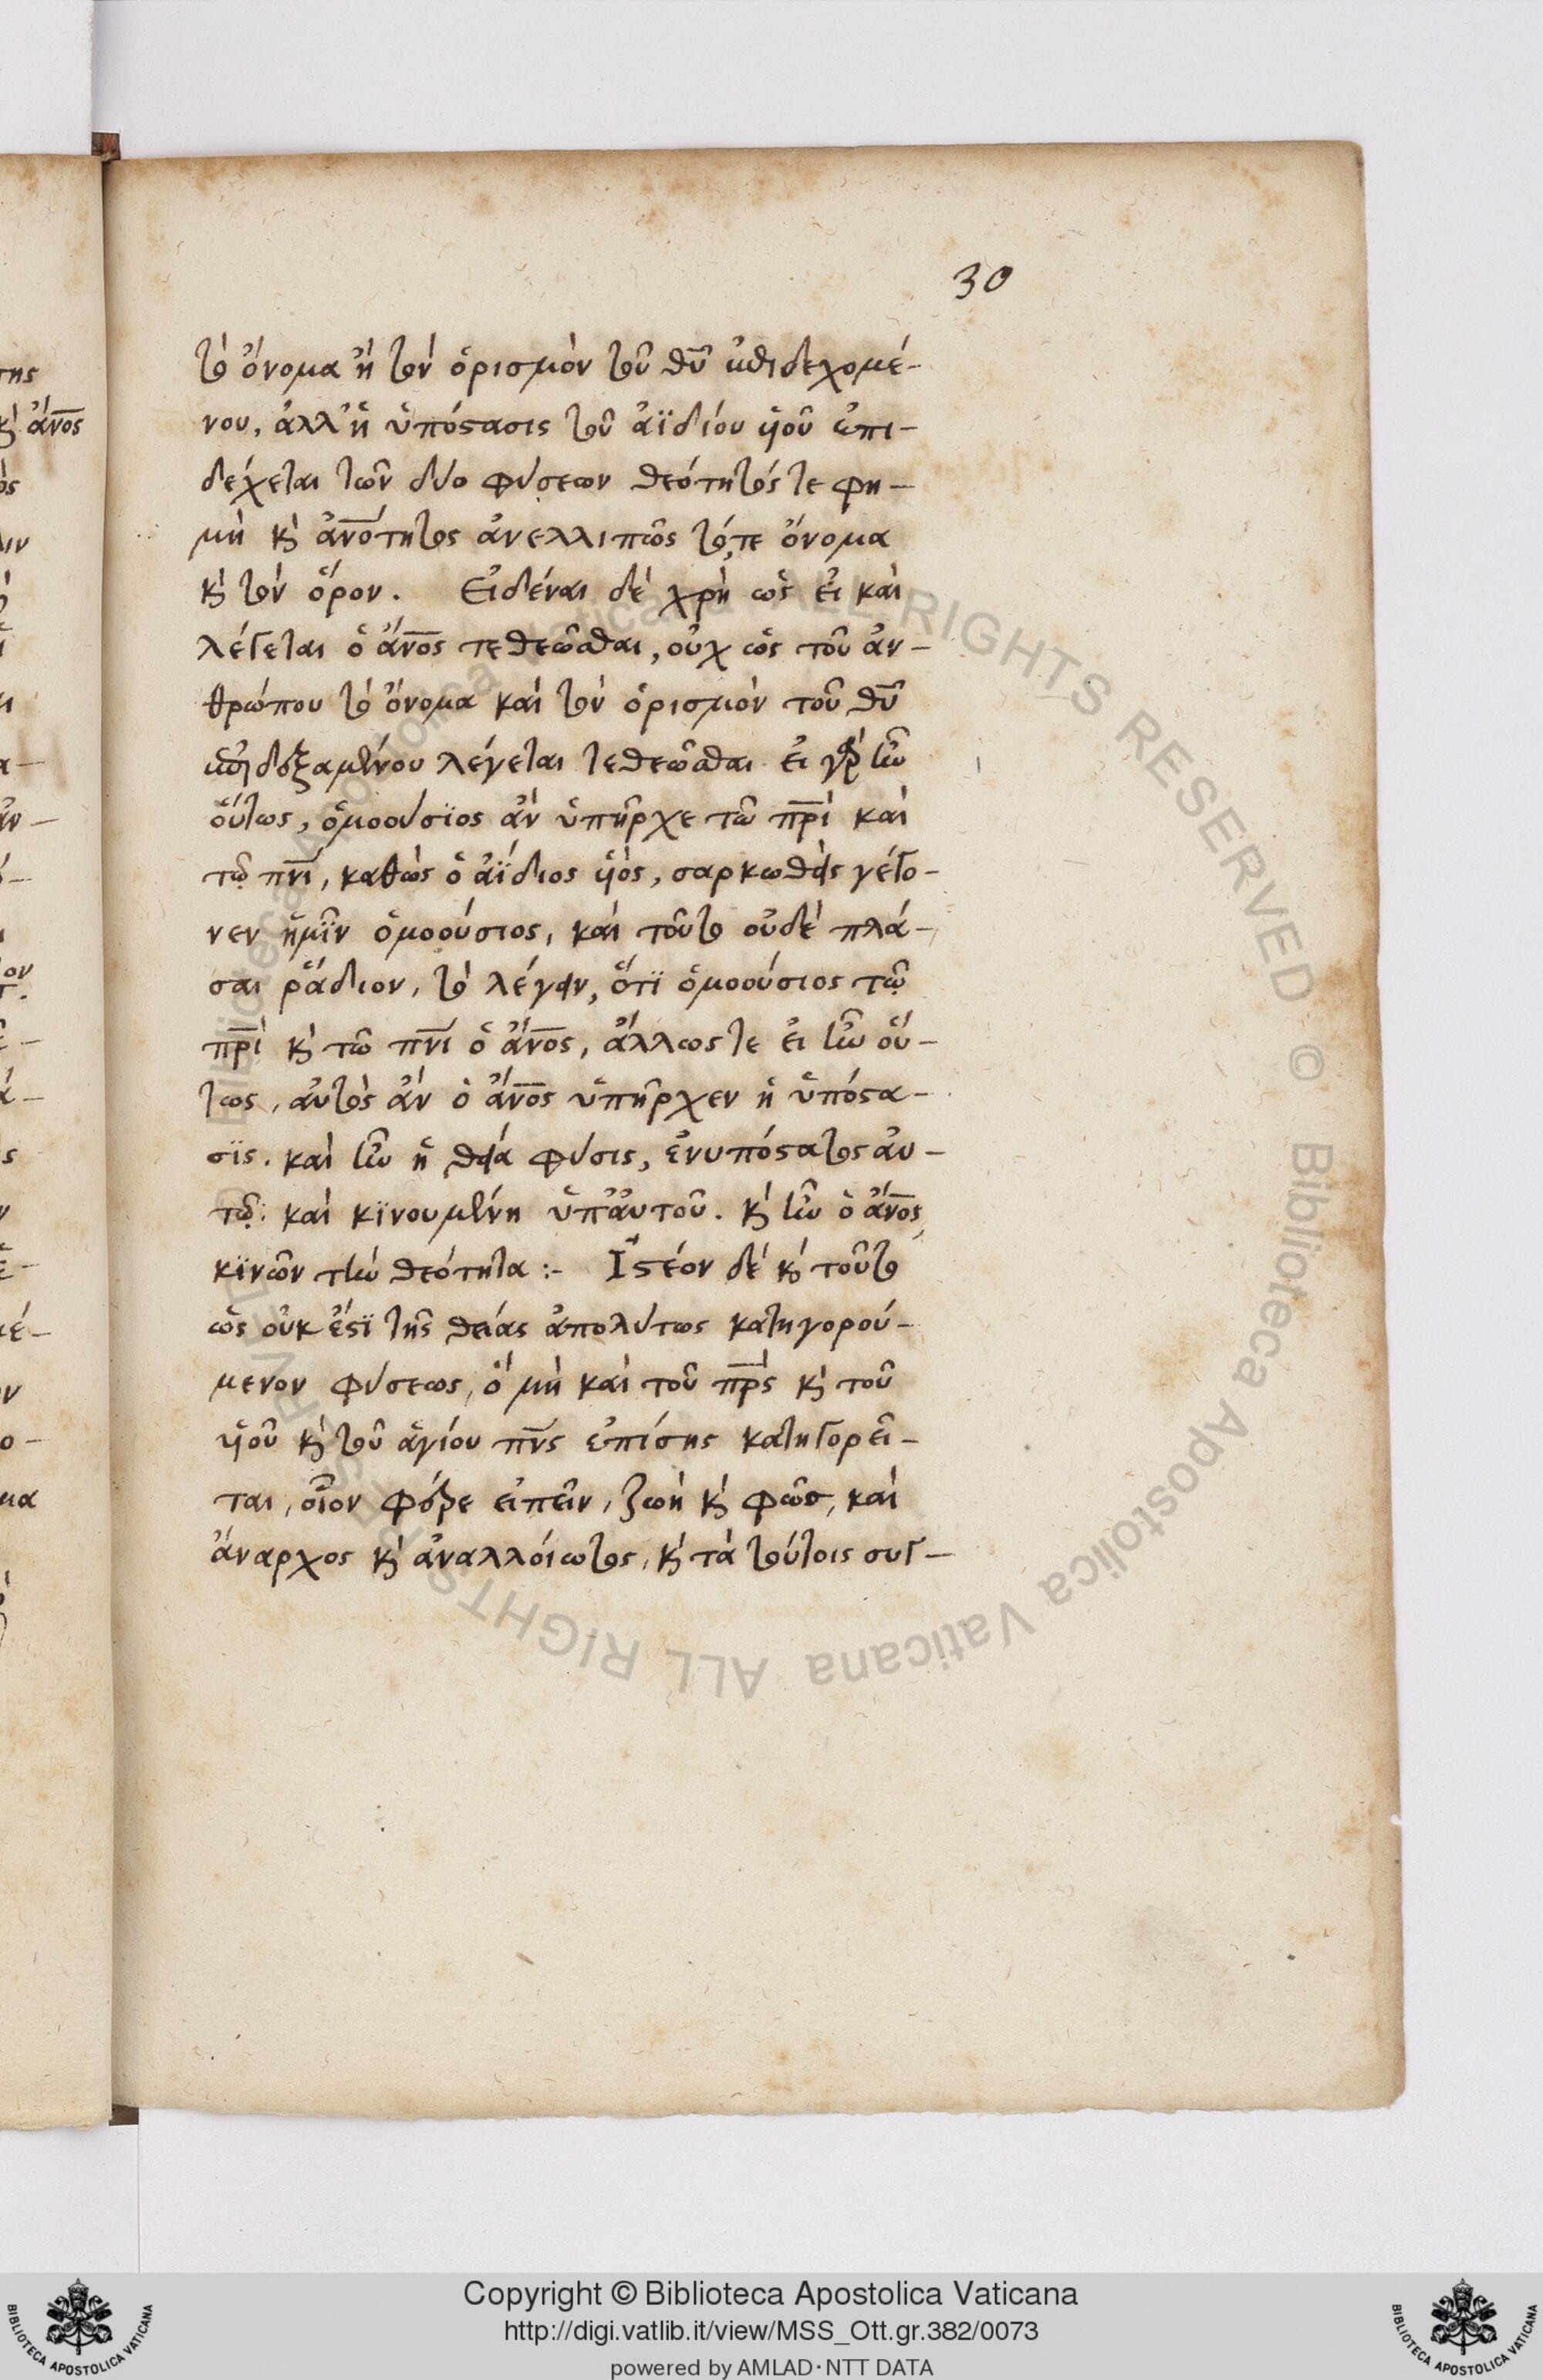 30
τὸ ὄνομα ἢ τὸν ὁρισμὸν τοῦ θυ ἐπιδεχομέ-
νου, ἀλλ' ἡ ὑπόστασις τοῦ ἀϊδίου υἱοῦ ἐπι-
δέχεται τῶν δύο φύσεων θεότητός τε φη-
μὴ κὶ ἀνότητος ἀνελλιπῶς τό,τε ὄνομα
κὶ τὸν ὅρον. Εἰδέναι δὲ χρὴ ὡς εἰ καὶ
λέγεται ὁ ἄνος τεθεῶσθαι, οὐχ ὡς τοῦ ἀν-
θρώπου τὸ ὄνομα καὶ τὸν ὁρισμὸν τοῦ θυ
ἐπιδεξαμένου λέγεται τεθεῶσθαι εἰ γὰρ ἦν
οὕτως, ὁμοούσϊος ἂν ὑπῆρχε τῶ πρὶ καὶ
τῷ πνι, καθὼς ὁ ἀΐδιος υἱὸς, σαρκωθεὶς γέγο-
νεν ἡμῖν ὁμοούσιος, καὶ τοῦτο οὐδὲ πλά-
σαι ῥάδιον, τὸ λέγειν, ὅτϊ ὁμοούσιος τῷ
πρὶ κὶ τῶ πνι ὁ ἄνος, ἄλλως τε εἰ ἦν οὕ-
τως, αὐτὸς ἂν ὁ ἄνος ὑπῆρχεν ἡ ὑπόστα-
σϊς. καὶ ἦν ἡ θεία φύσις, ἐνυπόστατος αὐ-
τῷ. καὶ κϊνουμένη ὑπ' ἀυτοῦ. κὶ ἦν ὁ ἄνος
κϊνῶν τὴν θεότητα :- Ἰστέον δὲ κὶ τοῦτο
ὡς οὐκ ἔστϊ τῆς θείας ἀπολύτως κατηγορού-
μενον φύσεως, ὃ μὴ καὶ τοῦ πρὸς κὶ τοῦ
υἱοῦ κὶ τοῦ ἁγίου πνς ἐπίσης κατηγορεῖ-
ται, οἷον φέρε εἰπεῖν, ζωὴ κὶ φῶς, καὶ
ἄναρχος κὶ ἀναλλοίωτος, κὶ τὰ τούτοις συγ-
Copyright © Biblioteca Apostolica Vaticana
http://digi.vatlib.it/view/MSS_Ott.gr.382/0073
powered by AMLAD·NTT DATA